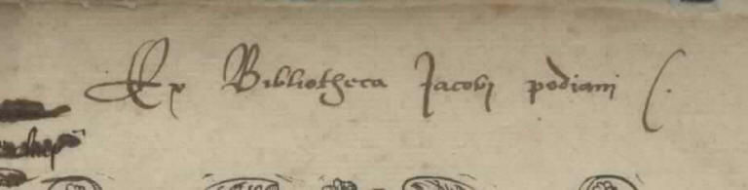 Ex Bibliotheca Jacobi podiani